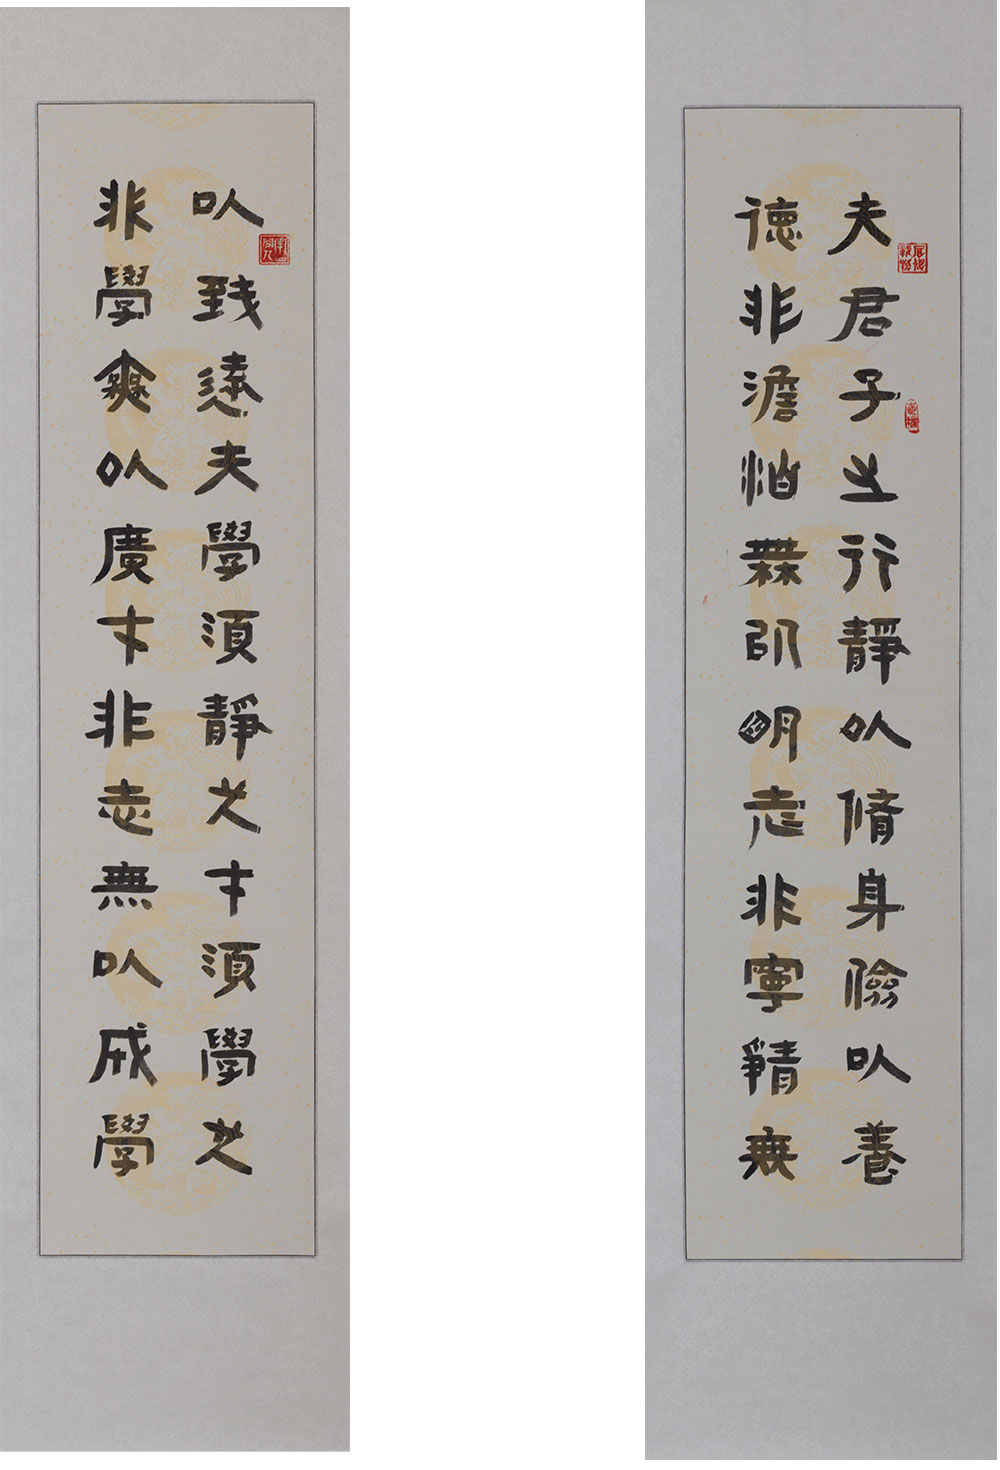 夫君子之行靜以脩身儉以養
德非澹怕無以明志非寧靜無
以致遠夫學須靜也才須學也
非學無以廣才非志無以成學